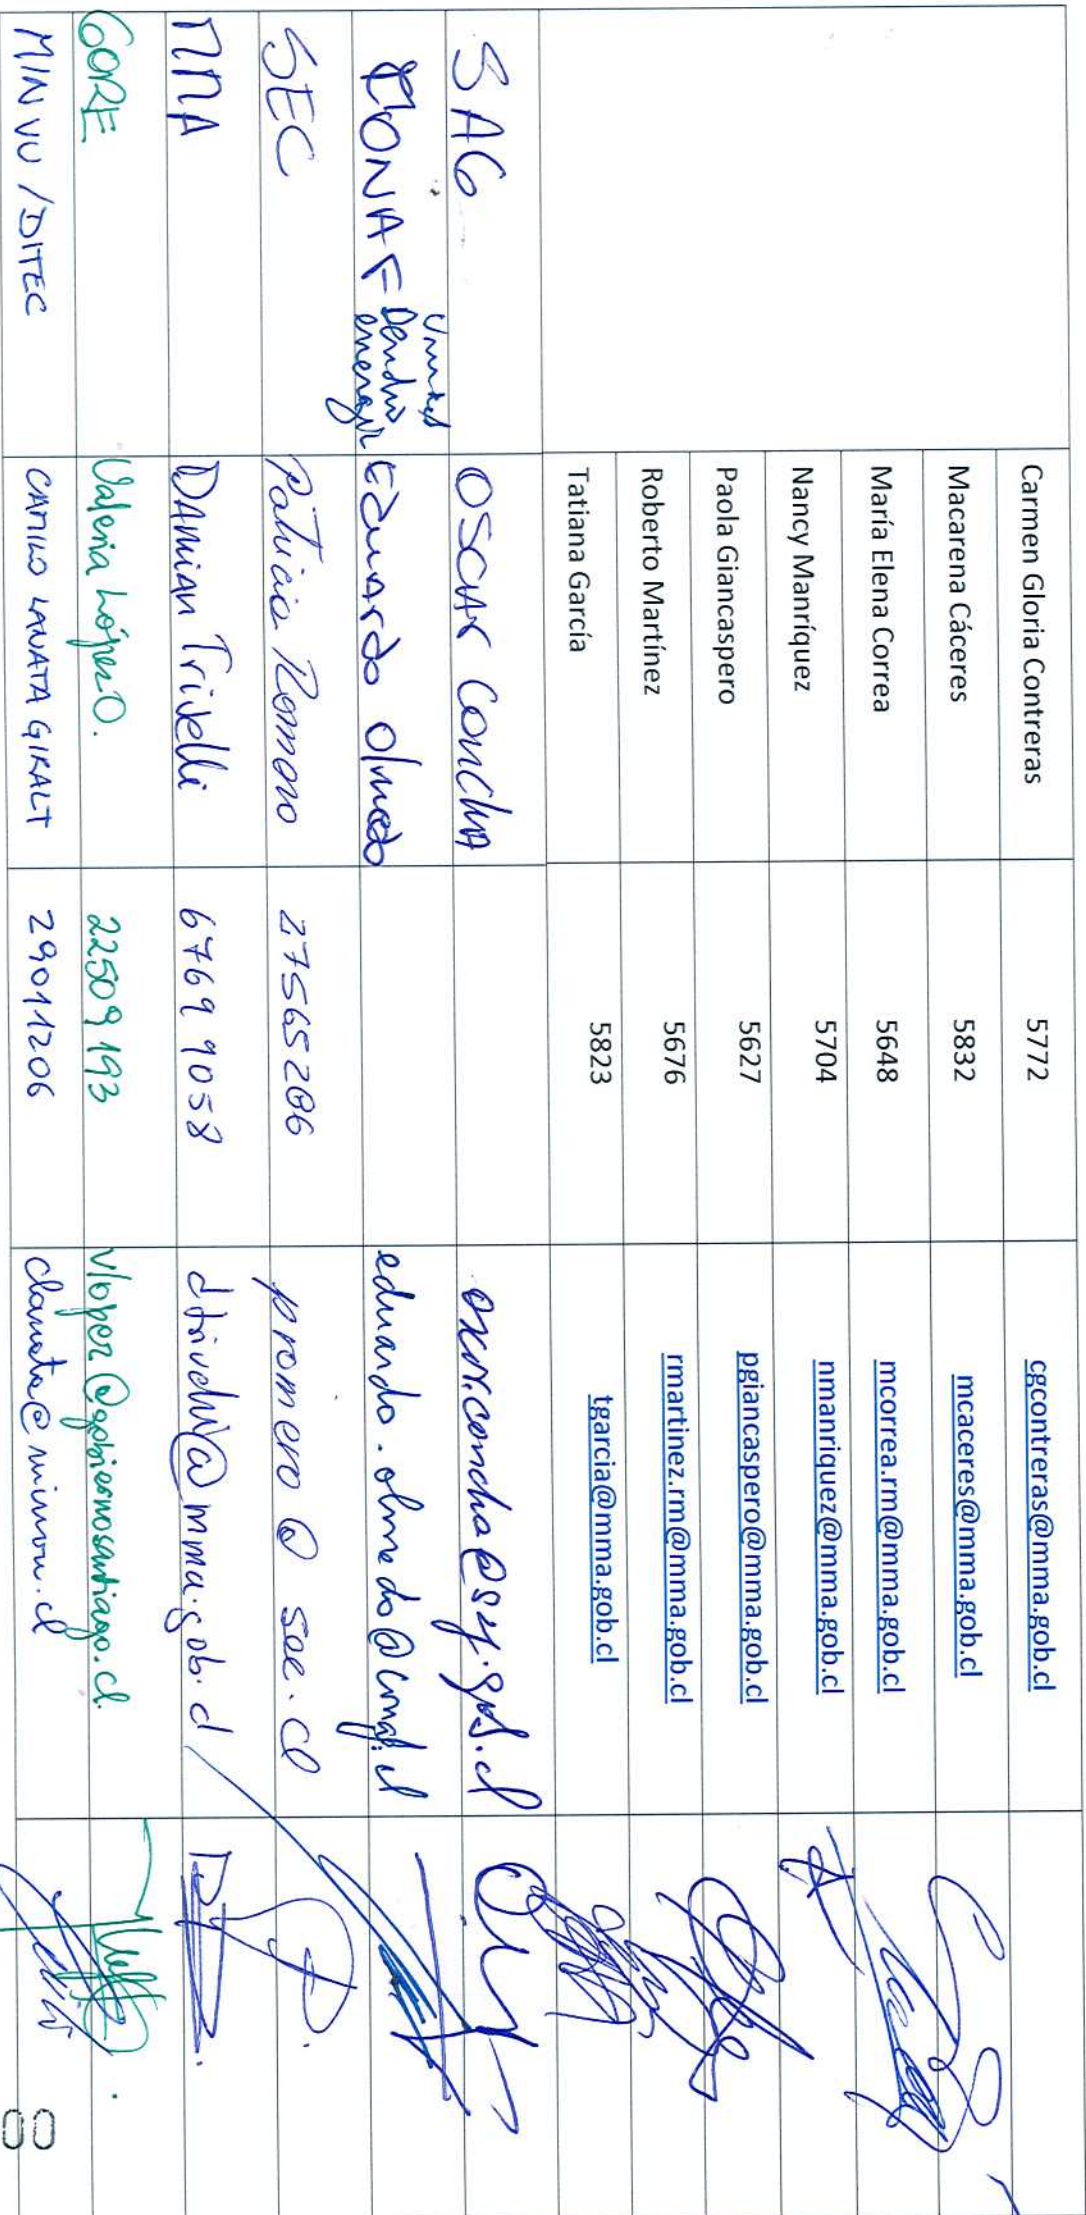 Carmen Gloria Contreras 5772 cgcontreras@mma.gob.cl
Macarena Cáceres 5832 mcaceres@mma.gob.cl
María Elena Correa 5648 mcorrea.rm@mma.gob.cl
Nancy Manríquez 5704 nmanriquez@mma.gob.cl
Paola Giancaspero 5627 pgiancaspero@mma.gob.cl
Roberto Martínez 5676 rmartinez.rm@mma.gob.cl
Tatiana García 5823 tgarcia@mma.gob.cl
SAG OSCAR CONCHA
CONAF Dendro energía Eduardo Olmedo eduardo.olmedo@conaf.cl
SEC Patricio Romero 27565206 promero@sec.cl
MMA DAMIAN Trivelli 67699058
GORE Valeria López O. 22509193 vlopez@gobiernosantiago.cl
MINVU/DITEC CAMILO LANATA GIRALT 29011206 clanata@minvu.cl